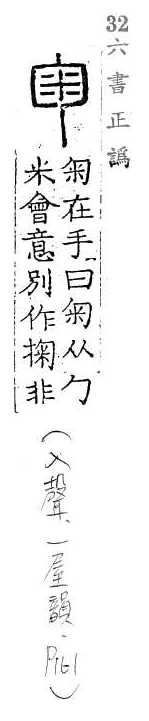 32六書正譌
匊在手曰匊从勹
米會意別作掬非
(入聲、一屋韻.P161)